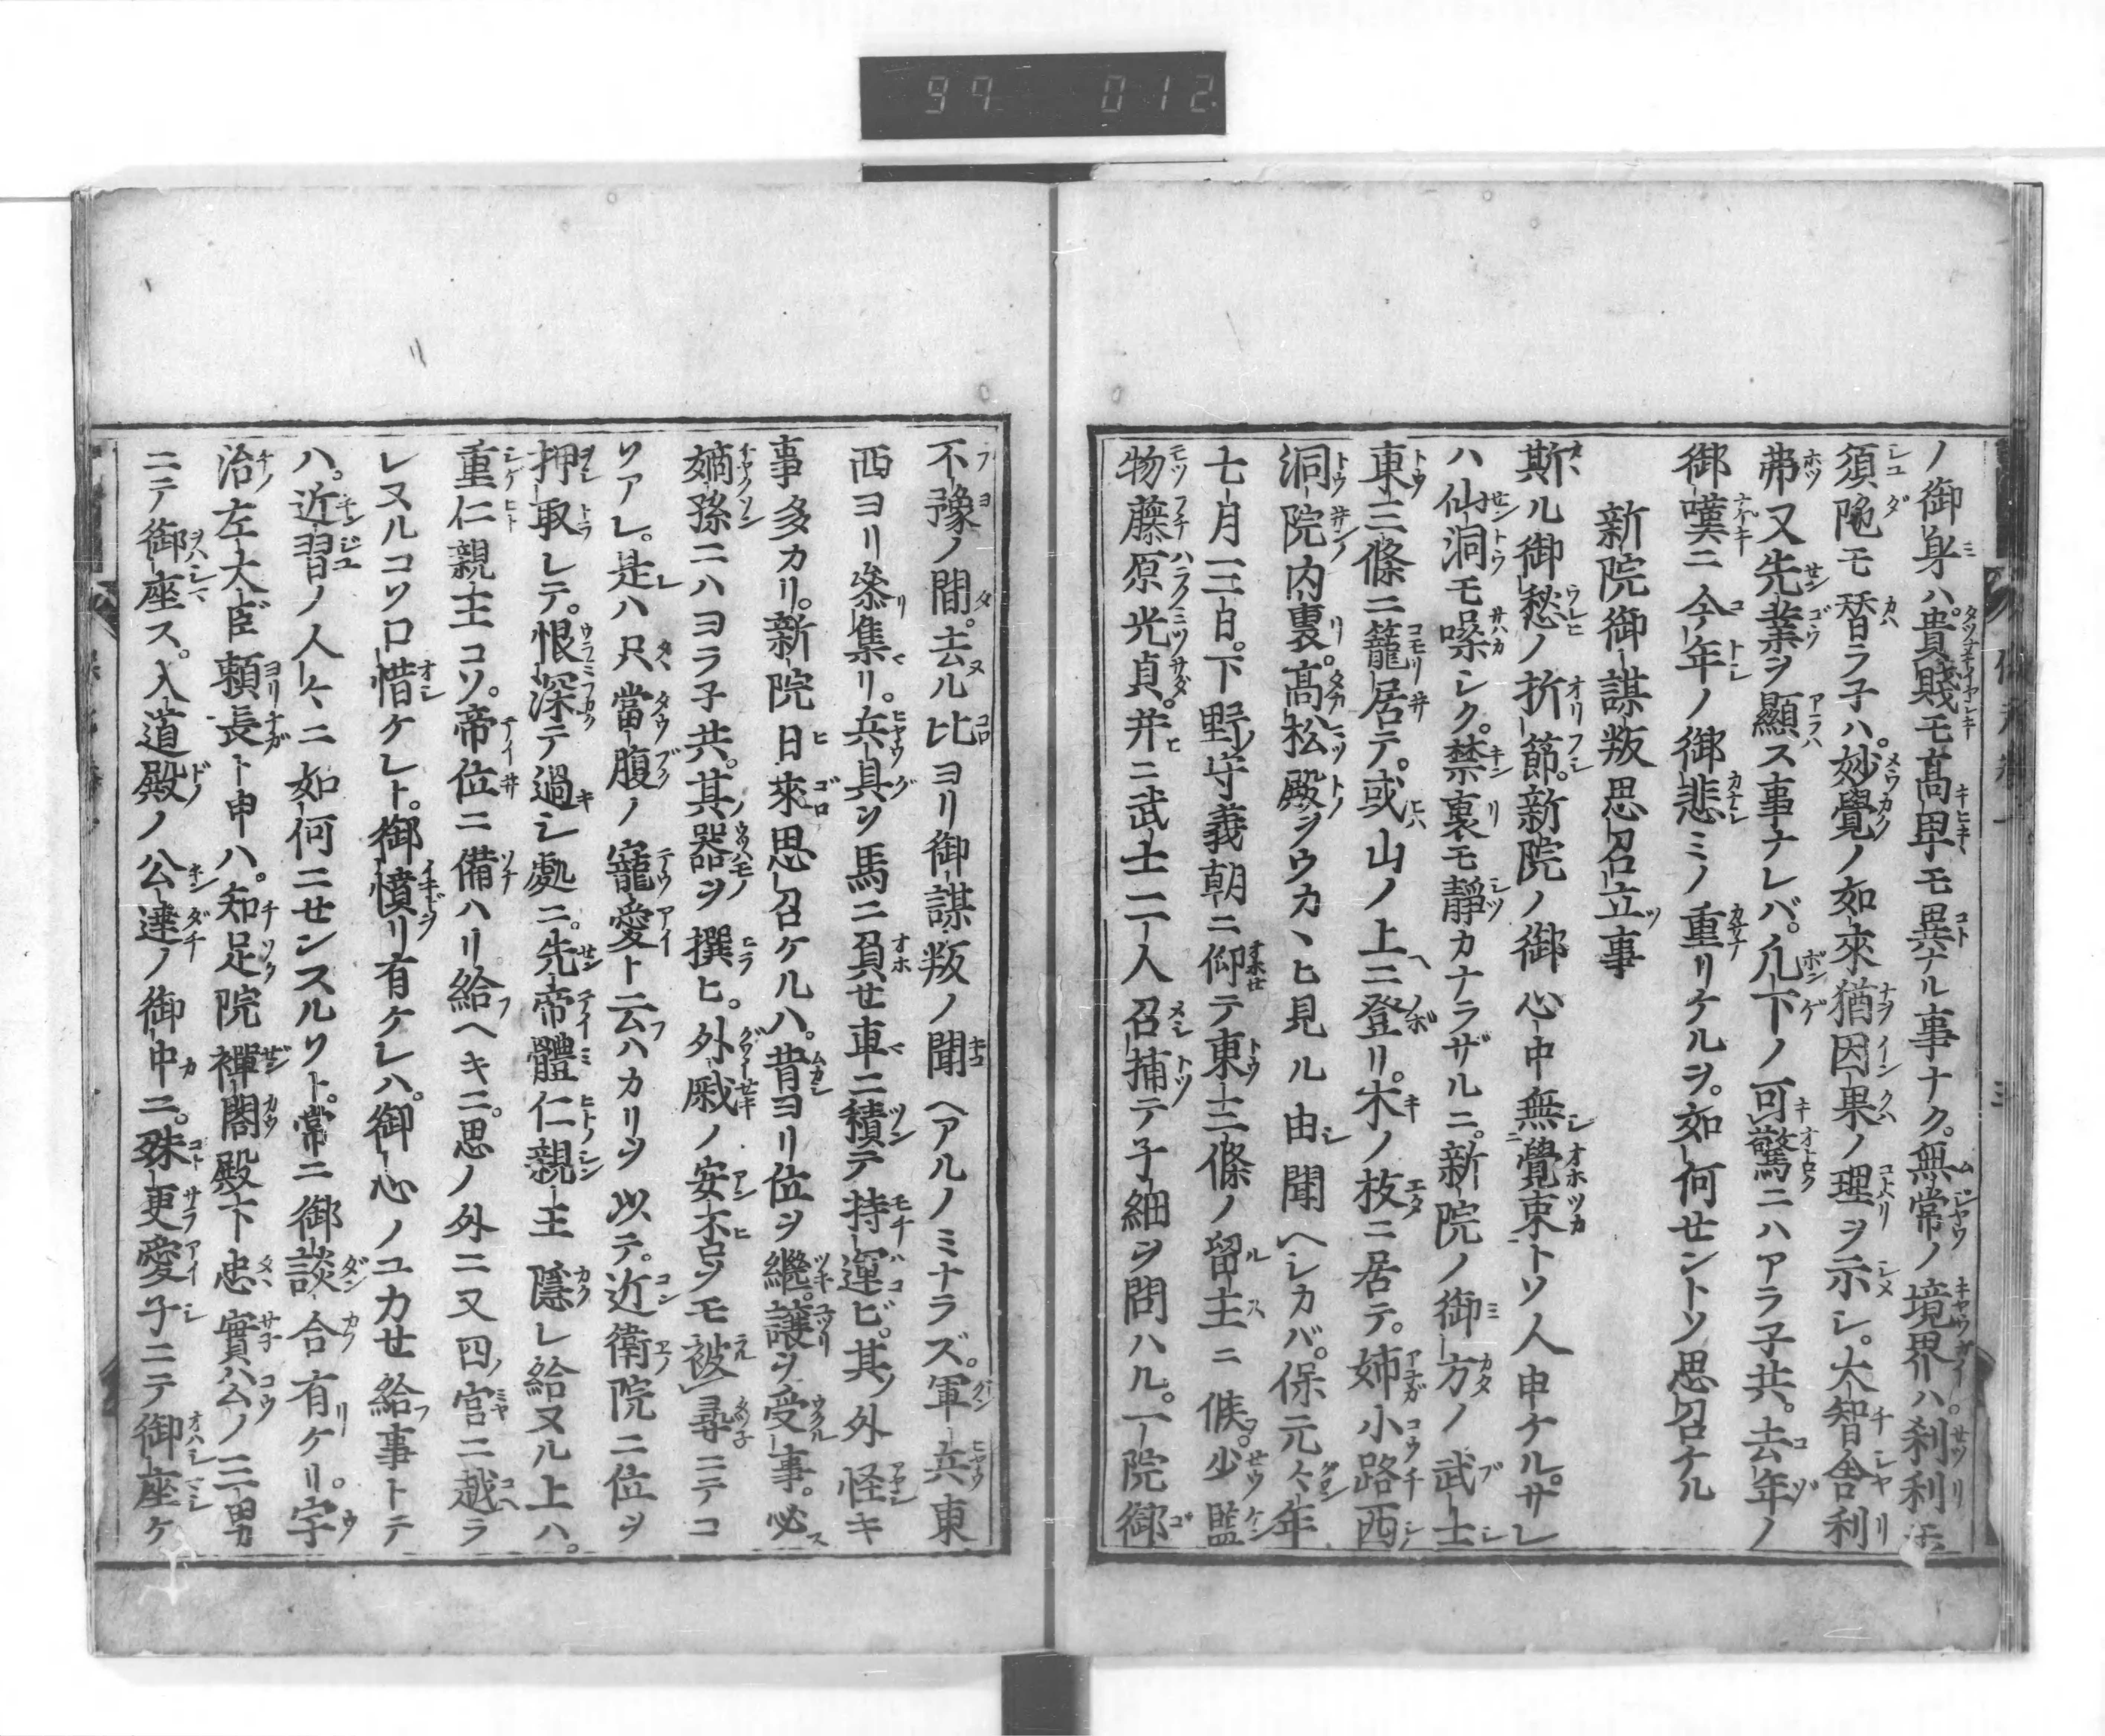 99 012
ノ御身ハ。貴賤モ高卑モ異ナル事ナク。無常ノ境界ハ刹利
須陁モ替ラ子ハ。妙覺ノ如來猶因果ノ理ヲ示シ。大智舎利
弗又先業ヲ顯ス事ナレバ。凡下ノ可驚ニハアラ子共。去年ノ
御嘆ニ今年ノ御悲ミノ重リケルヲ。如何セントソ思召ケル
新院御謀叛思召立事
斯ル御愁ノ折節。新院ノ御心中無覺束トソ人申ケル。サレ
ハ仙洞モ噪シク。禁裏モ靜カナラザルニ。新院ノ御方ノ武士
東三條ニ籠居テ。或山ノ上ニ登リ。木ノ枝ニ居テ。姉小路西
洞院内裏。高松殿ヲウカヽヒ見ル由聞ヘシカバ。保元々年
七月三日。下野守義朝ニ仰テ東三條ノ留主ニ候。少監
物藤原光貞。并ニ武士二人召捕テ子細ヲ問ハル。一院御
不豫ノ間。去ル比ヨリ御謀叛ノ聞ヘアルノミナラズ。軍兵東
西ヨリ參集リ。兵具ヲ馬ニ負せ車ニ積テ持運ビ。其外怪キ
事多カリ。新院日來思召ケルハ。昔ヨリ位ヲ繼。讓ヲ受事。必
嫡孫ニハヨラ子共。其器ヲ撰ヒ。外戚ノ安否ヲモ被尋ニテコ
ソアレ。是ハ只當腹ノ寵愛ト云ハカリヲ以テ。近衛院ニ位ヲ
押取レテ。恨深テ過シ處ニ。先帝體仁親王隱レ給ヌル上ハ。
重仁親王コソ。帝位ニ備ハリ給ヘキニ。思ノ外ニ又四宮ニ越ラ
レヌルコソ口惜ケレト。御憤リ有ケレハ。御心ノユカせ給事トテ
ハ。近習ノ人々ニ如何ニせンスルソト。常ニ御談合有ケリ。宇
治左大臣頼長ト申ハ。知足院禪閤殿下忠實公ノ三男
ニテ御座ス。入道殿ノ公達ノ御中ニ。殊更愛子ニテ御座ケ